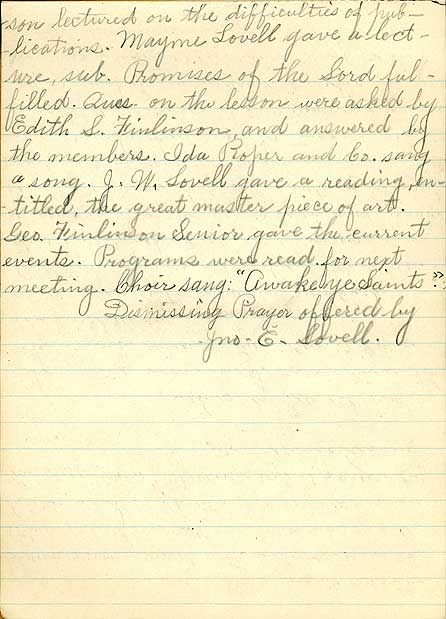 son lectured on the difficulties of pub-
-lications. Mayme Lovell gave a lect-
ure, sub. Promises of the Lord ful-
filled. Ques. on the lesson were asked by
Edith S. Finlinson, and answered by
the members. Ida Roper and Co. sang
a song. J. W. Lovell gave a reading, en-
-titled, the great master piece of art.
Geo. Finlinson Senior gave the current
events. Programs were read for next
meeting. Choir sang: "Awake ye Saints"?
Dismissing Prayer offered by
Jno. E. Lovell.